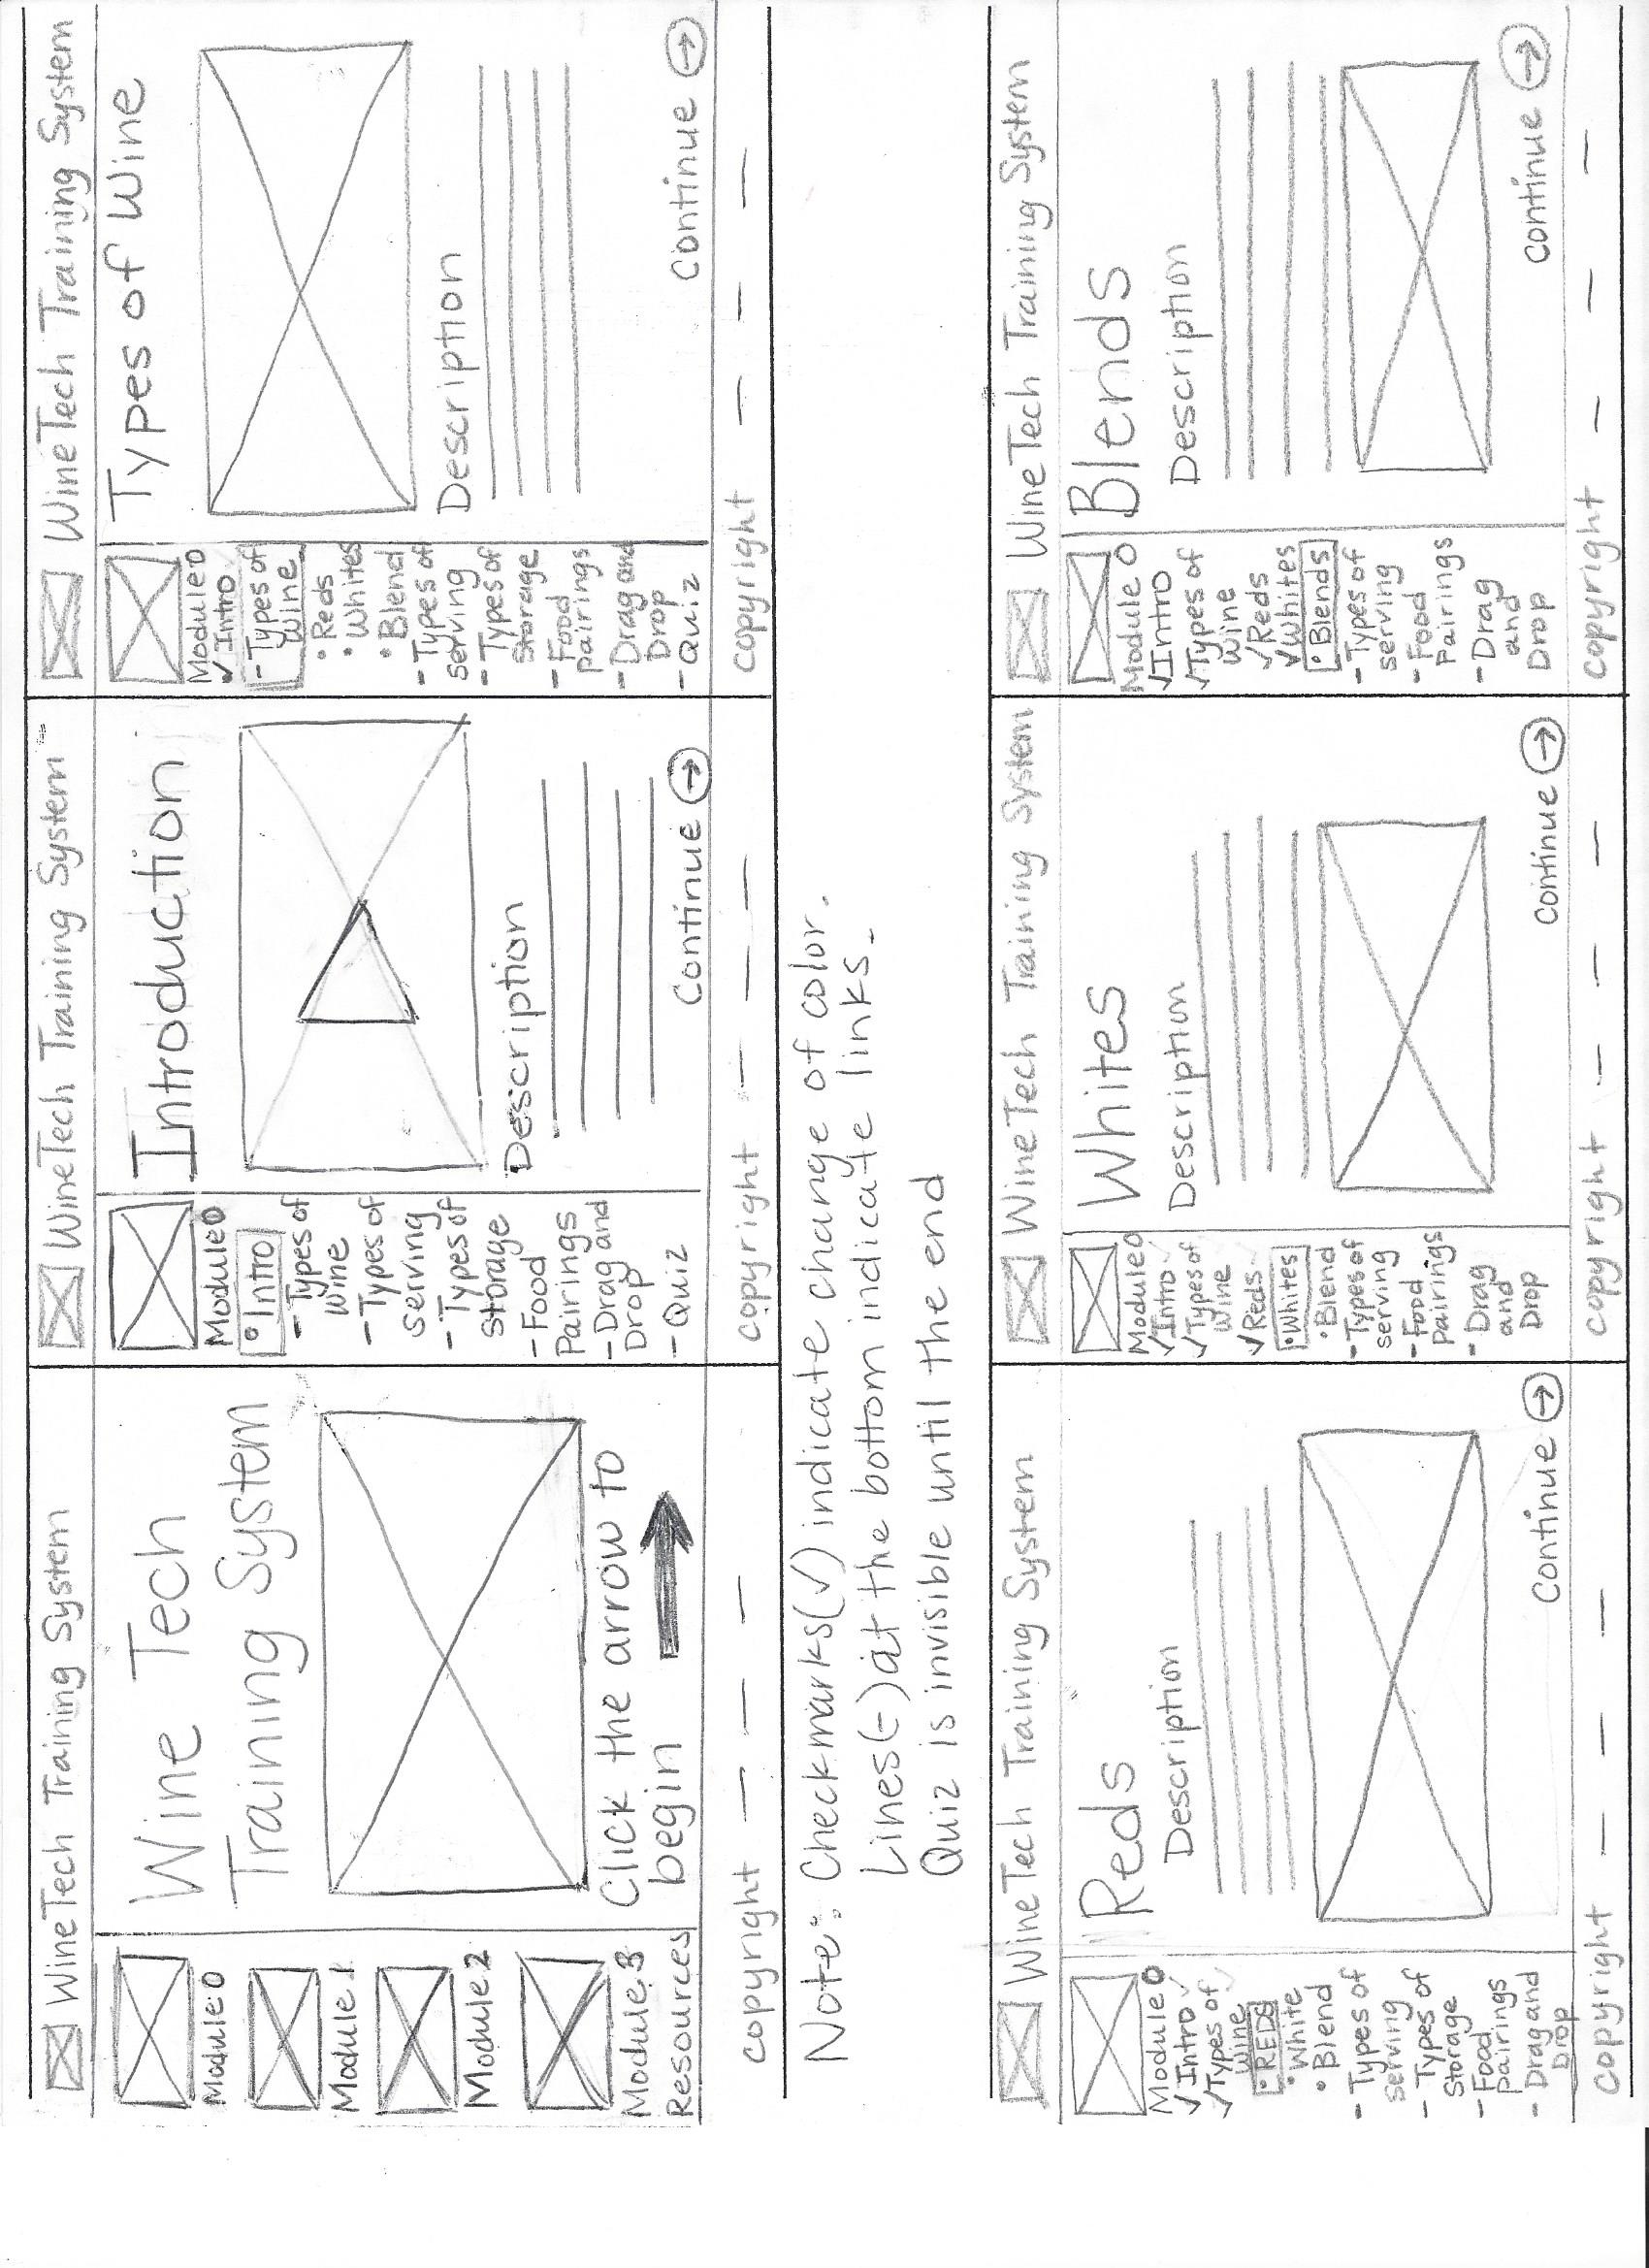 WineTech Training System
Module 0
Module 1
Module 2
Module 3
Resources
Wine Tech
Training System
Click the arrow to
begin
copyright
WineTech Training System
Module 0
• Intro
- Types of
Wine
- Types of
serving
- Types of
Storage
- Food
Pairings
- Drag and
Drop
- Quiz
Introduction
Description
Continue →
copyright
WineTech Training System
Module 0
✓ Intro
- Types of
wine
• Reds
• Whites
• Blend
- Types of
serving
- Types of
Storage
- Food
pairings
- Drag and
Drop
- Quiz
Types of Wine
Description
Continue →
copyright
Note: Checkmarks(✓) indicate change of color.
Lines(-) at the bottom indicate links.
Quiz is invisible until the end
WineTech Training System
Module 0
✓ Intro ✓
✓ Types of
wine
• REDS
• White
• Blend
- Types of
serving
- Types of
Storage
- Food
pairings
- Drag and
Drop
Reds
Description
Continue →
copyright
WineTech Training System
Module 0
✓ Intro
✓ Types of
wine
✓ Reds
• Whites
• Blend
- Types of
serving
- Food
pairings
- Drag
and
Drop
Whites
Description
Continue →
copyright
WineTech Training System
Module 0
✓ Intro
✓ Types of
wine
✓ Reds
✓ Whites
• Blends
- Types of
serving
- Food
Pairings
- Drag
and
Drop
Blends
Description
Continue →
copyright